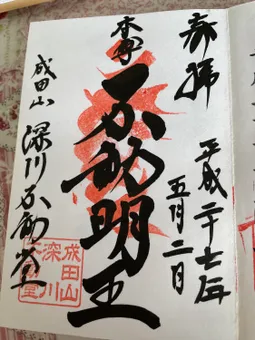 奉拝
平成二十七年
五月二日
本尊
不動明王
成田山
深川不動堂
成田山
深川
不動堂